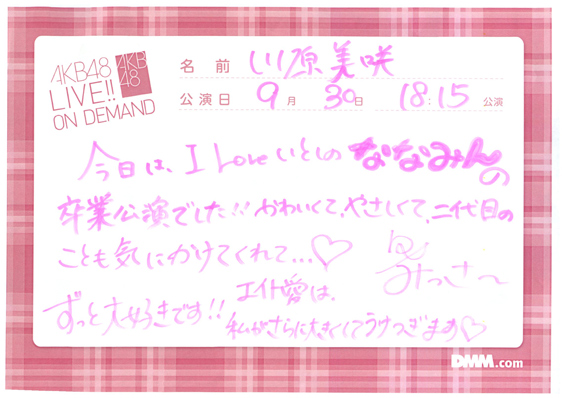 AKB48
LIVE!!
ON DEMAND
AKB
48
名前 川原美咲
公演日 9月 30日 18:15 公演
今日は、I Loveいとしの ななみんの
卒業公演でした!! かわいくて、やさしくて、二代目の
ことも気にかけてくれて...♡
みっきー
ずっと大好きです!!
エイト愛は、
私がさらに大きくしてうけつぎます♡
DMM.com